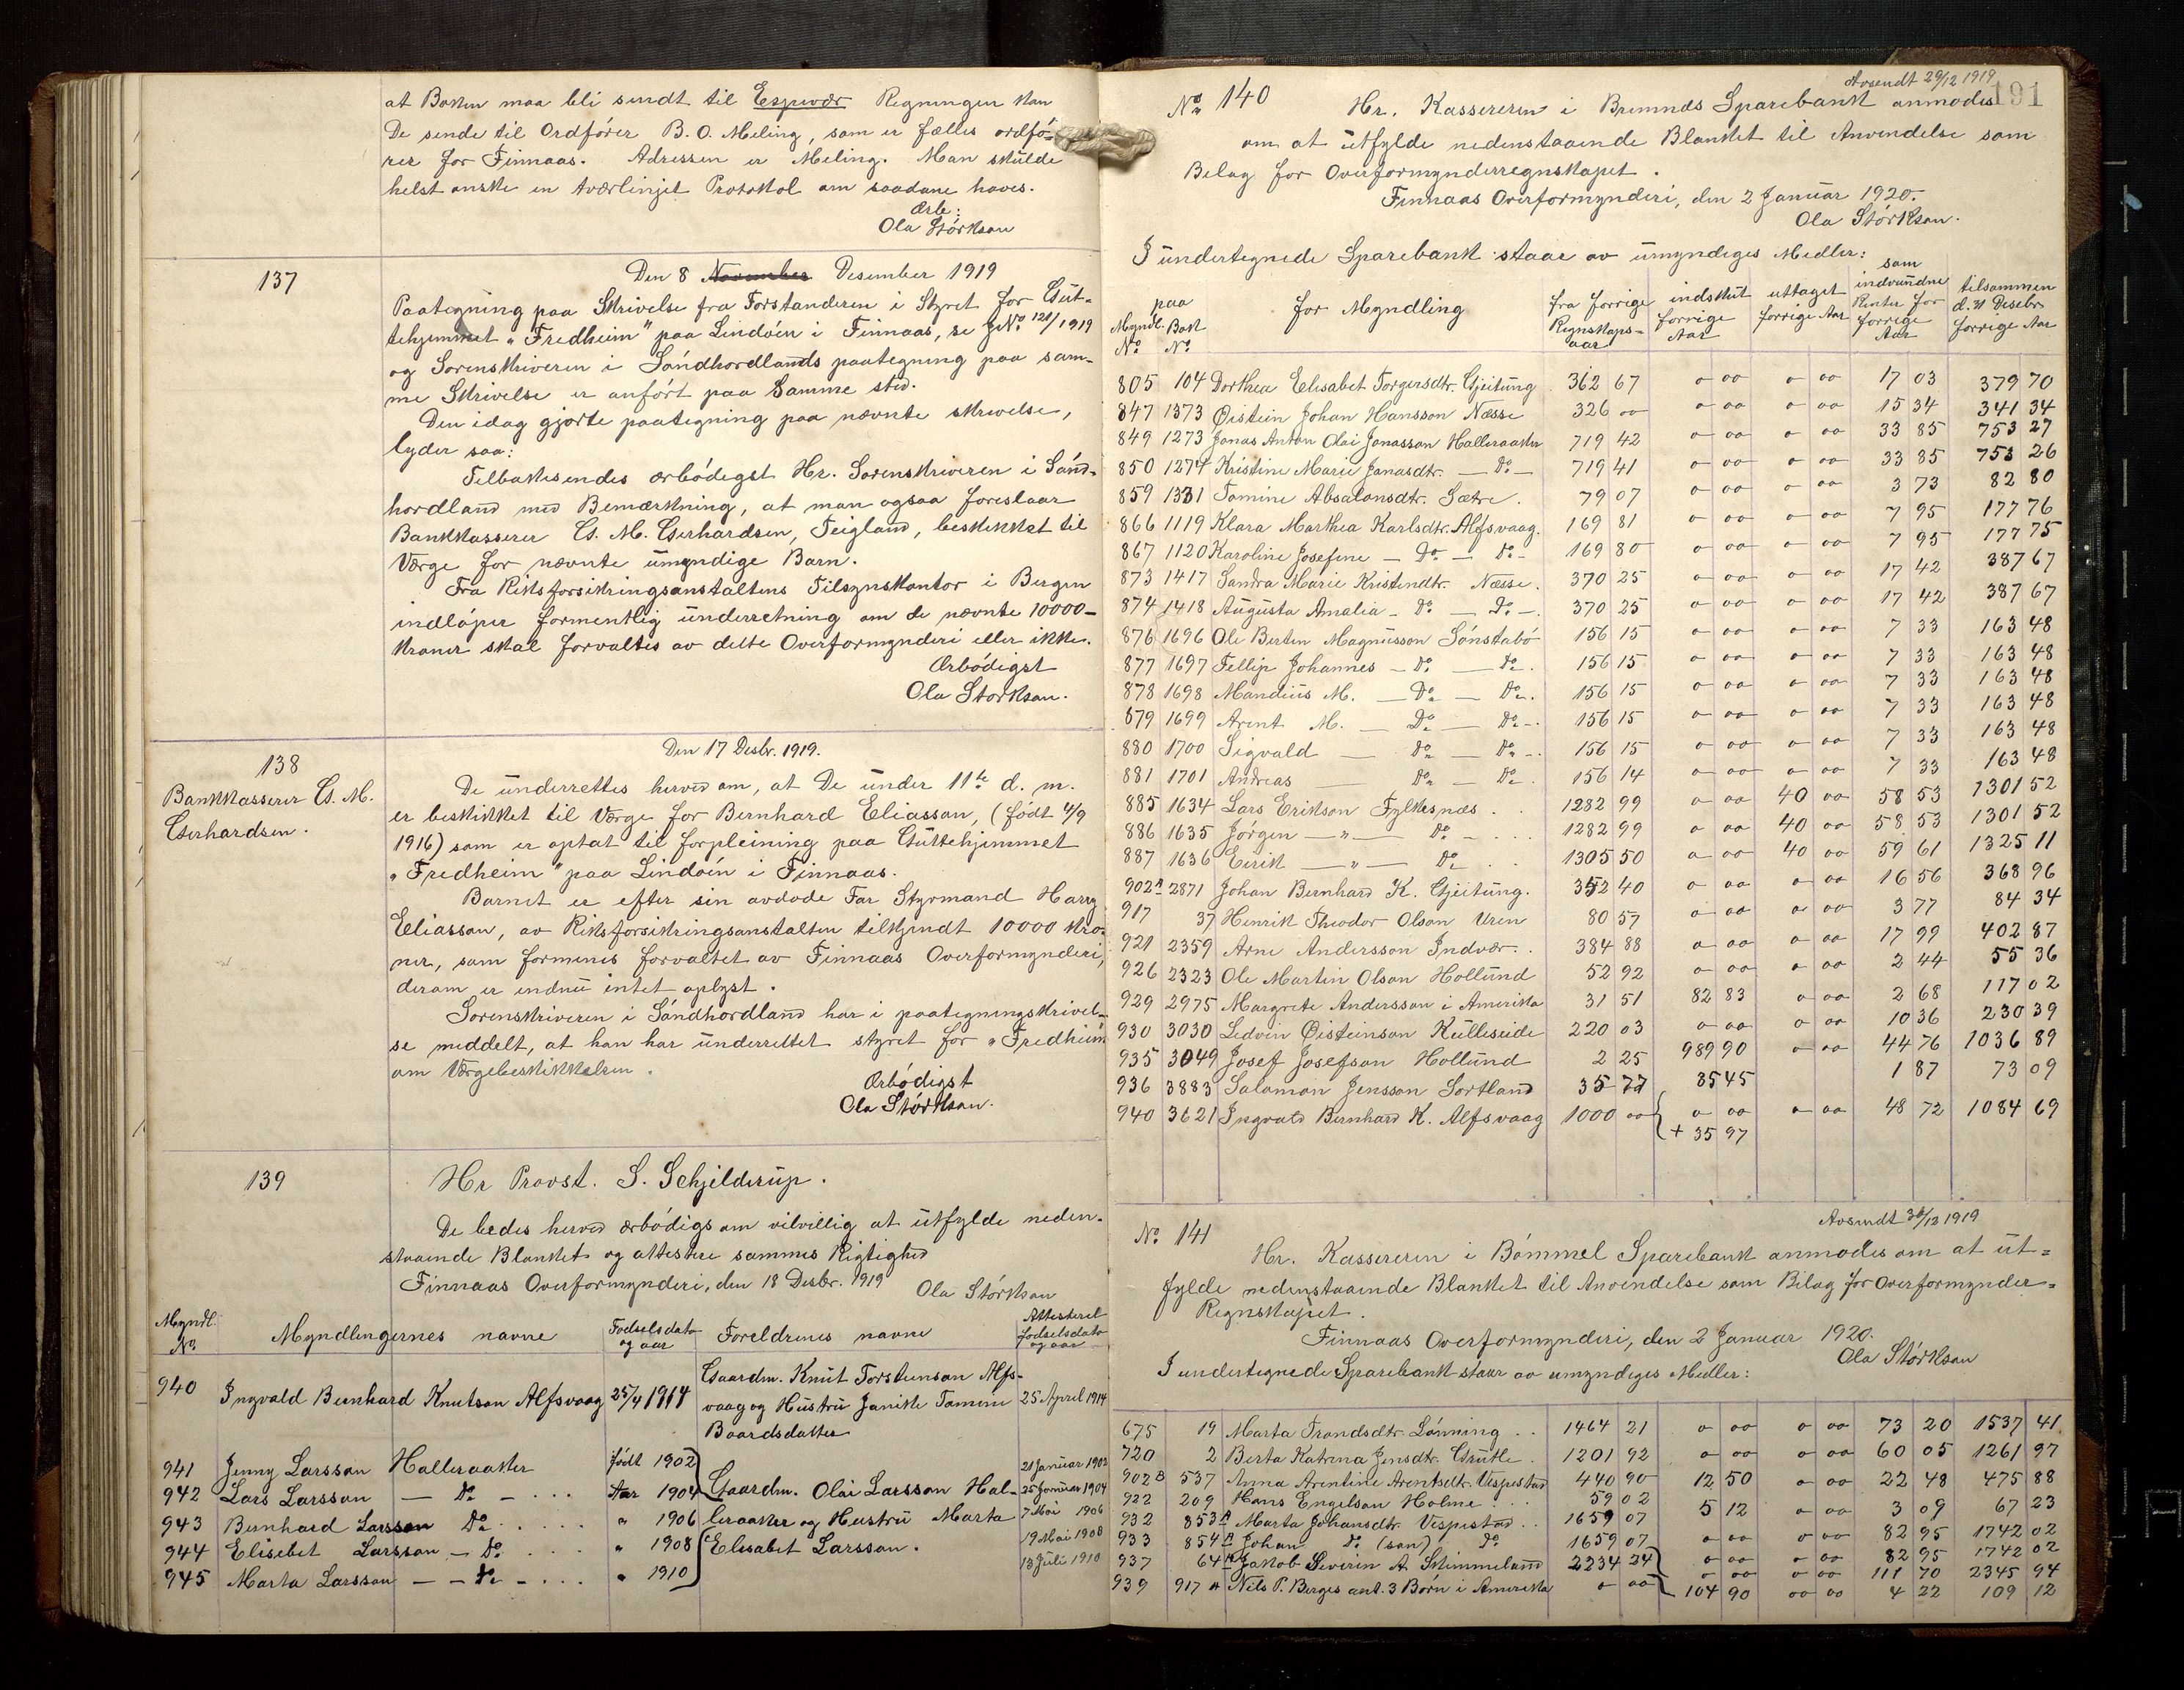 at Boken maa bli sendt til Espevær Regningen kan
De sende til Ordfører B. O. Meling, som er fælles ordfø-
rer for Finnaas. Adressen er Meling. Man skulde
helst ønske en tværlinjet Protokol om saadane haves.
Ærb:
Ola Størkson
137
Den 8 November Desember 1919
Paategning paa Skrivelse fra Forstanderen i Styret for Gut-
tehjemmet "Fredheim" paa Lindøen i Finnaas, se JNo. 121/1919
og Sorenskriveren i Søndhordlands paategning paa sam-
me Skrivelse er anført paa Samme sted.
Den idag gjorte paategning paa nævnte skrivelse,
lyder saa:
Tilbakesendes ærbødigst Hr. Sorenskriveren i Sønd-
hordland med Bemærkning, at man ogsaa foreslaar
Bankkasserer G. M. Gerhardsen, Teigland, beskikket til
Værge for nævnte umyndige Barn.
Fra Riksforsikringsanstaltens Tilsynskontor i Bergen
indløper formentlig underretning om de nævnte 10000-
kroner skal forvaltes av dette Overformynderi eller ikke.
Ærbødigst
Ola Størkson.
138
Bankkasserer G. M.
Gerhardsen.
Den 17 Desbr. 1919.
De underrettes herved om, at De under 11te d. m.
er beskikket til Værge for Bernhard Eliasson, (født 4/9
1916) som er optat til forpleining paa Guttehjemmet
"Fredheim" paa Lindøen i Finnaas.
Barnet er efter sin avdøde Far Styrmand Harry
Eliasson, av Riksforsikringsanstalten tilkjendt 10000 kro-
ner, som formenes forvaltet av Finnaas Overformynderi,
derom er endnu intet oplyst.
Sorenskriveren i Søndhordland har i paategningsskrivel-
se meddelt, at han har underrettet styret for "Fredheim"
om Værgebeskikkelsen.
Ærbødigst
Ola Størkson.
139
Hr Provst. S. Schjelderup.
De bedes herved ærbødigs om vilvillig at utfylde neden-
staaende Blanket og attestere sammes Rigtighed
Finnaas Overformynderi, den 18 Desbr. 1919 Ola Størkson
Myndl. No. Myndlingernes navne Fødselsdato og aar Foreldrenes navne Attesteret fødselsdato og aar
940 Ingvald Bernhard Knutson Alfsvaag 25/4 1914 Gaardm. Knut Torstenson Alfs-
vaag og Hustru Janike Tomine 25 April 1914
Baardsdatter
941 Jenny Larsson Halleraaker født 1902 21 Januar 1902
942 Lars Larsson — Do — . . . Aar 1904 Gaardm. Olai Larsson Hal- 25 Januar 1904
943 Bernhard Larsson Do . . . . " 1906 leraaker og Hustru Marta 7 Mai 1906
944 Elisebet Larsson — Do . . . " 1908 Elesabet Larsson. 19 Mai 1908
945 Marta Larsson — — Do — . . . " 1910 13 Juli 1910
Avsendt 29/12 1919
191
No 140 Hr. Kassereren i Bremnes Sparebank anmodes
om at utfylde nedenstaaende Blanket til Anvendelse som
Belag for Overformynderregnskapet.
Finnaas Overformynderi, den 2 Januar 1920.
Ola Størkson.
I undertegnede Sparebank staar av umyndiges Medler:
Myndl. No. paa Bok No. for Myndling fra forrige Regnskaps-aar indskut forrige Aar uttaget forrige Aar som indvundne Renter for forrige Aar tilsammen d. 31 Desebr forrige Aar
805 104 Dorthea Elesabet Torgersdtr. Gjeitung 362 67 0 00 0 00 17 03 379 70
847 1373 Øistein Johan Hansson Næsse 326 00 0 00 0 00 15 34 341 34
849 1273 Jonas Anton Olai Jonasson Halleraaker 719 42 0 00 0 00 33 85 753 27
850 1274 Kristine Marie Jonasdtr. — Do — 719 41 0 00 0 00 33 85 753 26
859 1331 Tomine Absalonsdtr. Sætre. 79 07 0 00 0 00 3 73 82 80
866 1119 Klara Marthea Karlsdtr. Alfsvaag. 169 81 0 00 0 00 7 95 177 76
867 1120 Karoline Josefine — Do — Do — 169 80 0 00 0 00 7 95 177 75
873 1417 Sandra Marie Kristendtr. Næsse. 370 25 0 00 0 00 17 42 387 67
874 1418 Augusta Amalia — Do — Do —. 370 25 0 00 0 00 17 42 387 67
876 1696 Ole Berten Magnusson Sønstabø 156 15 0 00 0 00 7 33 163 48
877 1697 Fellip Johannes — Do — Do. 156 15 0 00 0 00 7 33 163 48
878 1698 Mandius M. — Do — Do. 156 15 0 00 0 00 7 33 163 48
879 1699 Arent M. — Do — Do —. 156 15 0 00 0 00 7 33 163 48
880 1700 Sigvald — Do — Do —. 156 15 0 00 0 00 7 33 163 48
881 1701 Andreas — Do — Do. 156 14 0 00 0 00 7 33 163 48
885 1634 Lars Erikson Fylkesnæs . . 1282 99 0 00 40 00 58 53 1301 52
886 1635 Jørgen — " — Do — . . . 1282 99 0 00 40 00 58 53 1301 52
887 1636 Eirik — " — Do . . 1305 50 0 00 40 00 59 61 1325 11
902A 2871 Johan Bernhard K. Gjeitung. 352 40 0 00 0 00 16 56 368 96
917 37 Henrik Theodor Olson Uren 80 57 0 00 0 00 3 77 84 34
921 2359 Arne Andersson Indvær . . 384 88 0 00 0 00 17 99 402 87
926 2323 Ole Martin Olson Hollund 52 92 0 00 0 00 2 44 55 36
929 2975 Margrete Andersson i Amerika 31 51 82 83 0 00 2 68 117 02
930 3030 Ledvin Øisteinson Kulleseide 220 03 0 00 0 00 10 36 230 39
935 3049 Josef Josefson Hollund 2 25 989 90 0 00 44 76 1036 89
936 3883 Salomon Jensson Sortland 35 77 35 45 1 87 73 09
940 3621 Ingvald Bernhard K. Alfsvaag 1000 00 0 00 0 00 48 72 1084 69
+ 35 97
Avsendt 30/12 1919
No. 141
Hr. Kassereren i Bømmel Sparebank anmodes om at ut=
fylde nedenstaaende Blanket til Anvendelse som Bilag for Overformynder=
Regnskapet.
Finnaas Overformynderi, den 2 Januar 1920.
Ola Størkson
I undertegnede Sparebank staar av umyndiges Medler:
675 19 Marta Trondsdtr. Lønning . . 1464 21 0 00 0 00 73 20 1537 41
720 2 Berta Katrina Jensdtr. Grutle. 1201 92 0 00 0 00 60 05 1261 97
902B 537 Anna Arentine Arentsdtr. Vespestad 440 90 12 50 0 00 22 48 475 88
922 209 Hans Engelson Holme . . . 59 02 5 12 0 00 3 09 67 23
932 853A Marta Johansdtr. Vespestad . . 1659 07 0 00 0 00 82 95 1742 02
933 854A Johan Do (søn) Do 1659 07 0 00 0 00 82 95 1742 02
937 64A Jakob Severin A. Stimmeland 2234 24 0 00 0 00 111 70 2345 94
939 917A Nils P. Berges ant. 3 Børn i Amerika 0 00 104 90 00 00 4 22 109 12